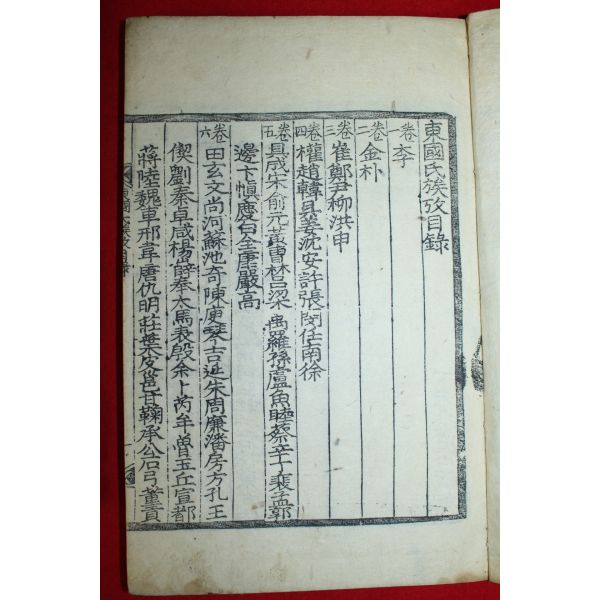 東國氏族攷目錄
卷一 李
卷二 金朴
卷三 崔鄭尹柳洪申
卷四 權趙韓吳姜沈安許張閔任南徐
卷五 具成宋俞元黃曺林呂梁禹羅孫盧魚睦蔡辛丁裵孟郭
邊卞愼慶白全康嚴高
卷六 田玄文尚河蘇池奇陳庾琴吉延朱周廉潘房方孔王
偰劉秦卓咸楊薛奉太馬表殷余卜芮牟曾玉丘宣都
蔣陸魏車邢韋唐仇明莊葉皮邕甘鞠承公石弓董賁